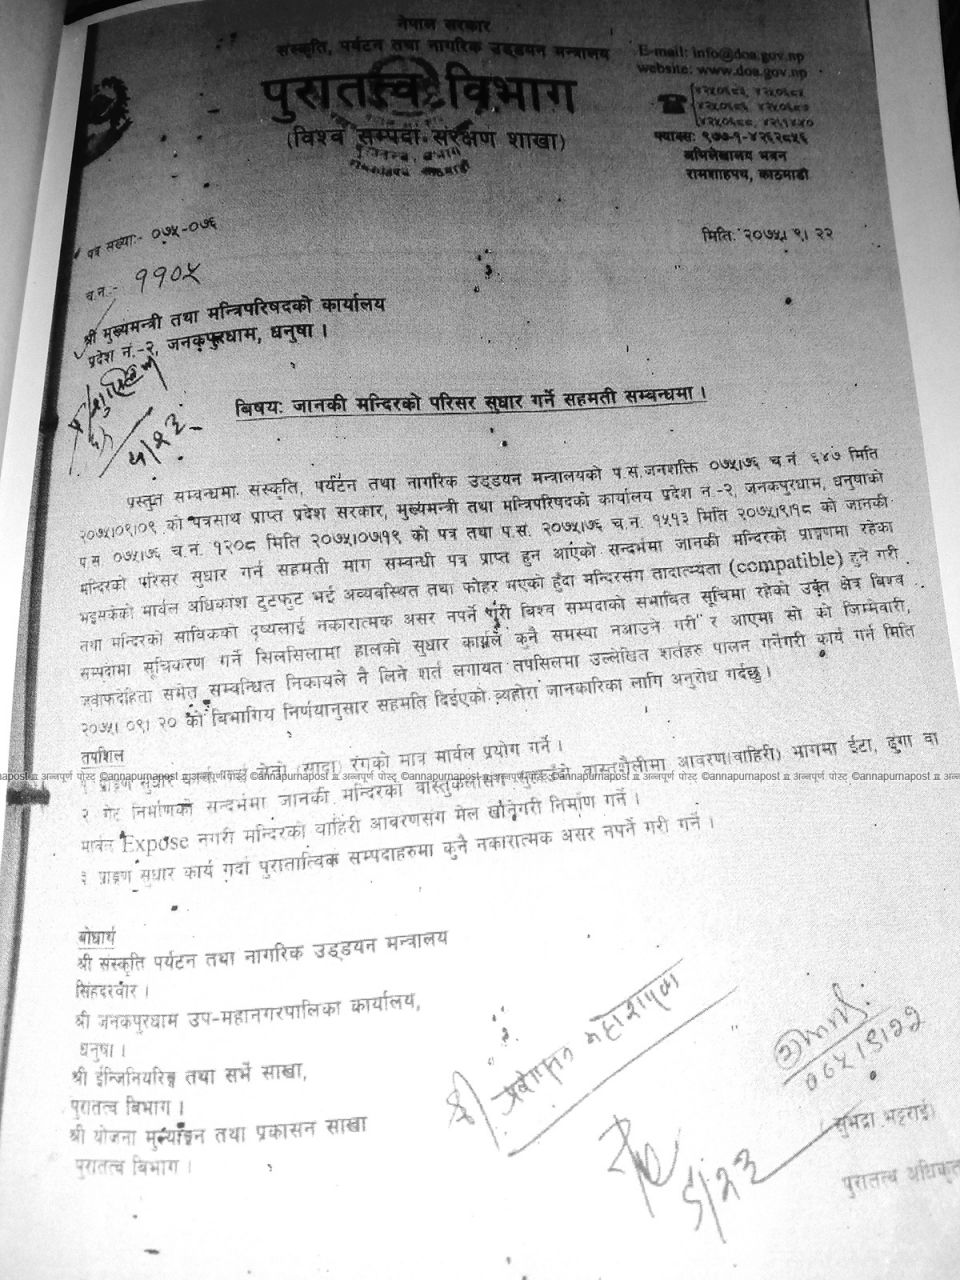 नेपाल सरकार
संस्कृति, पर्यटन तथा नागरिक उड्डयन मन्त्रालय
पुरातत्त्व विभाग
(विश्व सम्पदा संरक्षण शाखा)
E-mail: info@doa.gov.np
website: www.doa.gov.np
फ्याक्सः ९७७-१-४२६२८५६
अभिलेखालय भवन
रामशाहपथ, काठमाडौं
पत्र संख्याः- ०७५-०७६
मितिः २०७५। ९। २२
च.नं.- ११०५
श्री मुख्यमन्त्री तथा मन्त्रिपरिषदको कार्यालय
प्रदेश नं.-२, जनकपुरधाम, धनुषा ।
५/२३
बिषयः जानकी मन्दिरको परिसर सुधार गर्ने सहमती सम्बन्धमा ।
प्रस्तुत सम्बन्धमा संस्कृति, पर्यटन तथा नागरिक उड्डयन मन्त्रालयको प.स.जनशक्ति ०७५।७६ च.नं. ६४७ मिति
२०७५।०९।०९ को पत्रसाथ प्राप्त प्रदेश सरकार, मुख्यमन्त्री तथा मन्त्रिपरिषदको कार्यालय प्रदेश नं.-२, जनकपुरधाम, धनुषाको
प.स. ०७५।७६ च.नं. १२०८ मिति २०७५।०७।१९ को पत्र तथा प.स. २०७५।७६ च.नं. १५१३ मिति २०७५।९।१८ को जानकी
मन्दिरको परिसर सुधार गर्न सहमती माग सम्बन्धी पत्र प्राप्त हुन आएको सन्दर्भमा जानकी मन्दिरको प्राङ्गणमा रहेका
भइसकेको मार्वल अधिकाश टुटफुट भई अव्यवस्थित तथा फोहर भएको हुँदा मन्दिरसंग तादात्म्यता (compatible) हुने गरी
तथा मन्दिरको साविकको दृष्यलाई नकारात्मक असर नपर्ने गरी विश्व सम्पदाको संभावित सूचिमा रहेको उक्त क्षेत्र विश्व
सम्पदामा सूचिकरण गर्ने सिलसिलामा हालको सुधार कार्यले कुनै समस्या नआउने गरी र आएमा सो को जिम्मेवारी,
जवाफदेहिता समेत सम्बन्धित निकायले नै लिने शर्त लगायत तपसिलमा उल्लेखित शर्तहरु पालन गर्नेगरी कार्य गर्न मिति
२०७५। ०९। २० को बिभागिय निर्णयानुसार सहमति दिईएको व्यहोरा जानकारिका लागि अनुरोध गर्दछु ।
तपशिल
१ प्राङ्गण सुधार सेतो (सादा) रंगको मात्र मार्वल प्रयोग गर्ने ।
©annapurnapost अन्नपूर्ण पोस्ट् ©annapurnapost अन्नपूर्ण पोस्ट् ©annapurnapost अन्नपूर्ण पोस्ट् ©annapurnapost
२ गेट निर्माणको सन्दर्भमा जानकी मन्दिरको वास्तुकलासंग वास्तुशैलीमा आवरण(वाहिरी) भागमा ईटा, ढुंगा वा
मार्वल Expose नगरी मन्दिरको वाहिरी आवरणसंग मेल खानेगरी निर्माण गर्ने ।
३ प्राङ्गण सुधार कार्य गर्दा पुरातात्विक सम्पदाहरुमा कुनै नकारात्मक असर नपर्ने गरी गर्ने ।
बोधार्थ
श्री संस्कृति पर्यटन तथा नागरिक उड्डयन मन्त्रालय
सिंहदरवार ।
श्री जनकपुरधाम उप-महानगरपालिका कार्यालय,
धनुषा ।
श्री ईन्जिनियरिङ्ग तथा सर्भे साखा,
पुरातत्व बिभाग ।
श्री योजना मुल्यांङ्कन तथा प्रकासन साखा
पुरातत्व बिभाग ।
०७५।९।२२
(सुभद्रा भट्टराई)
पुरातत्व अधिकृत